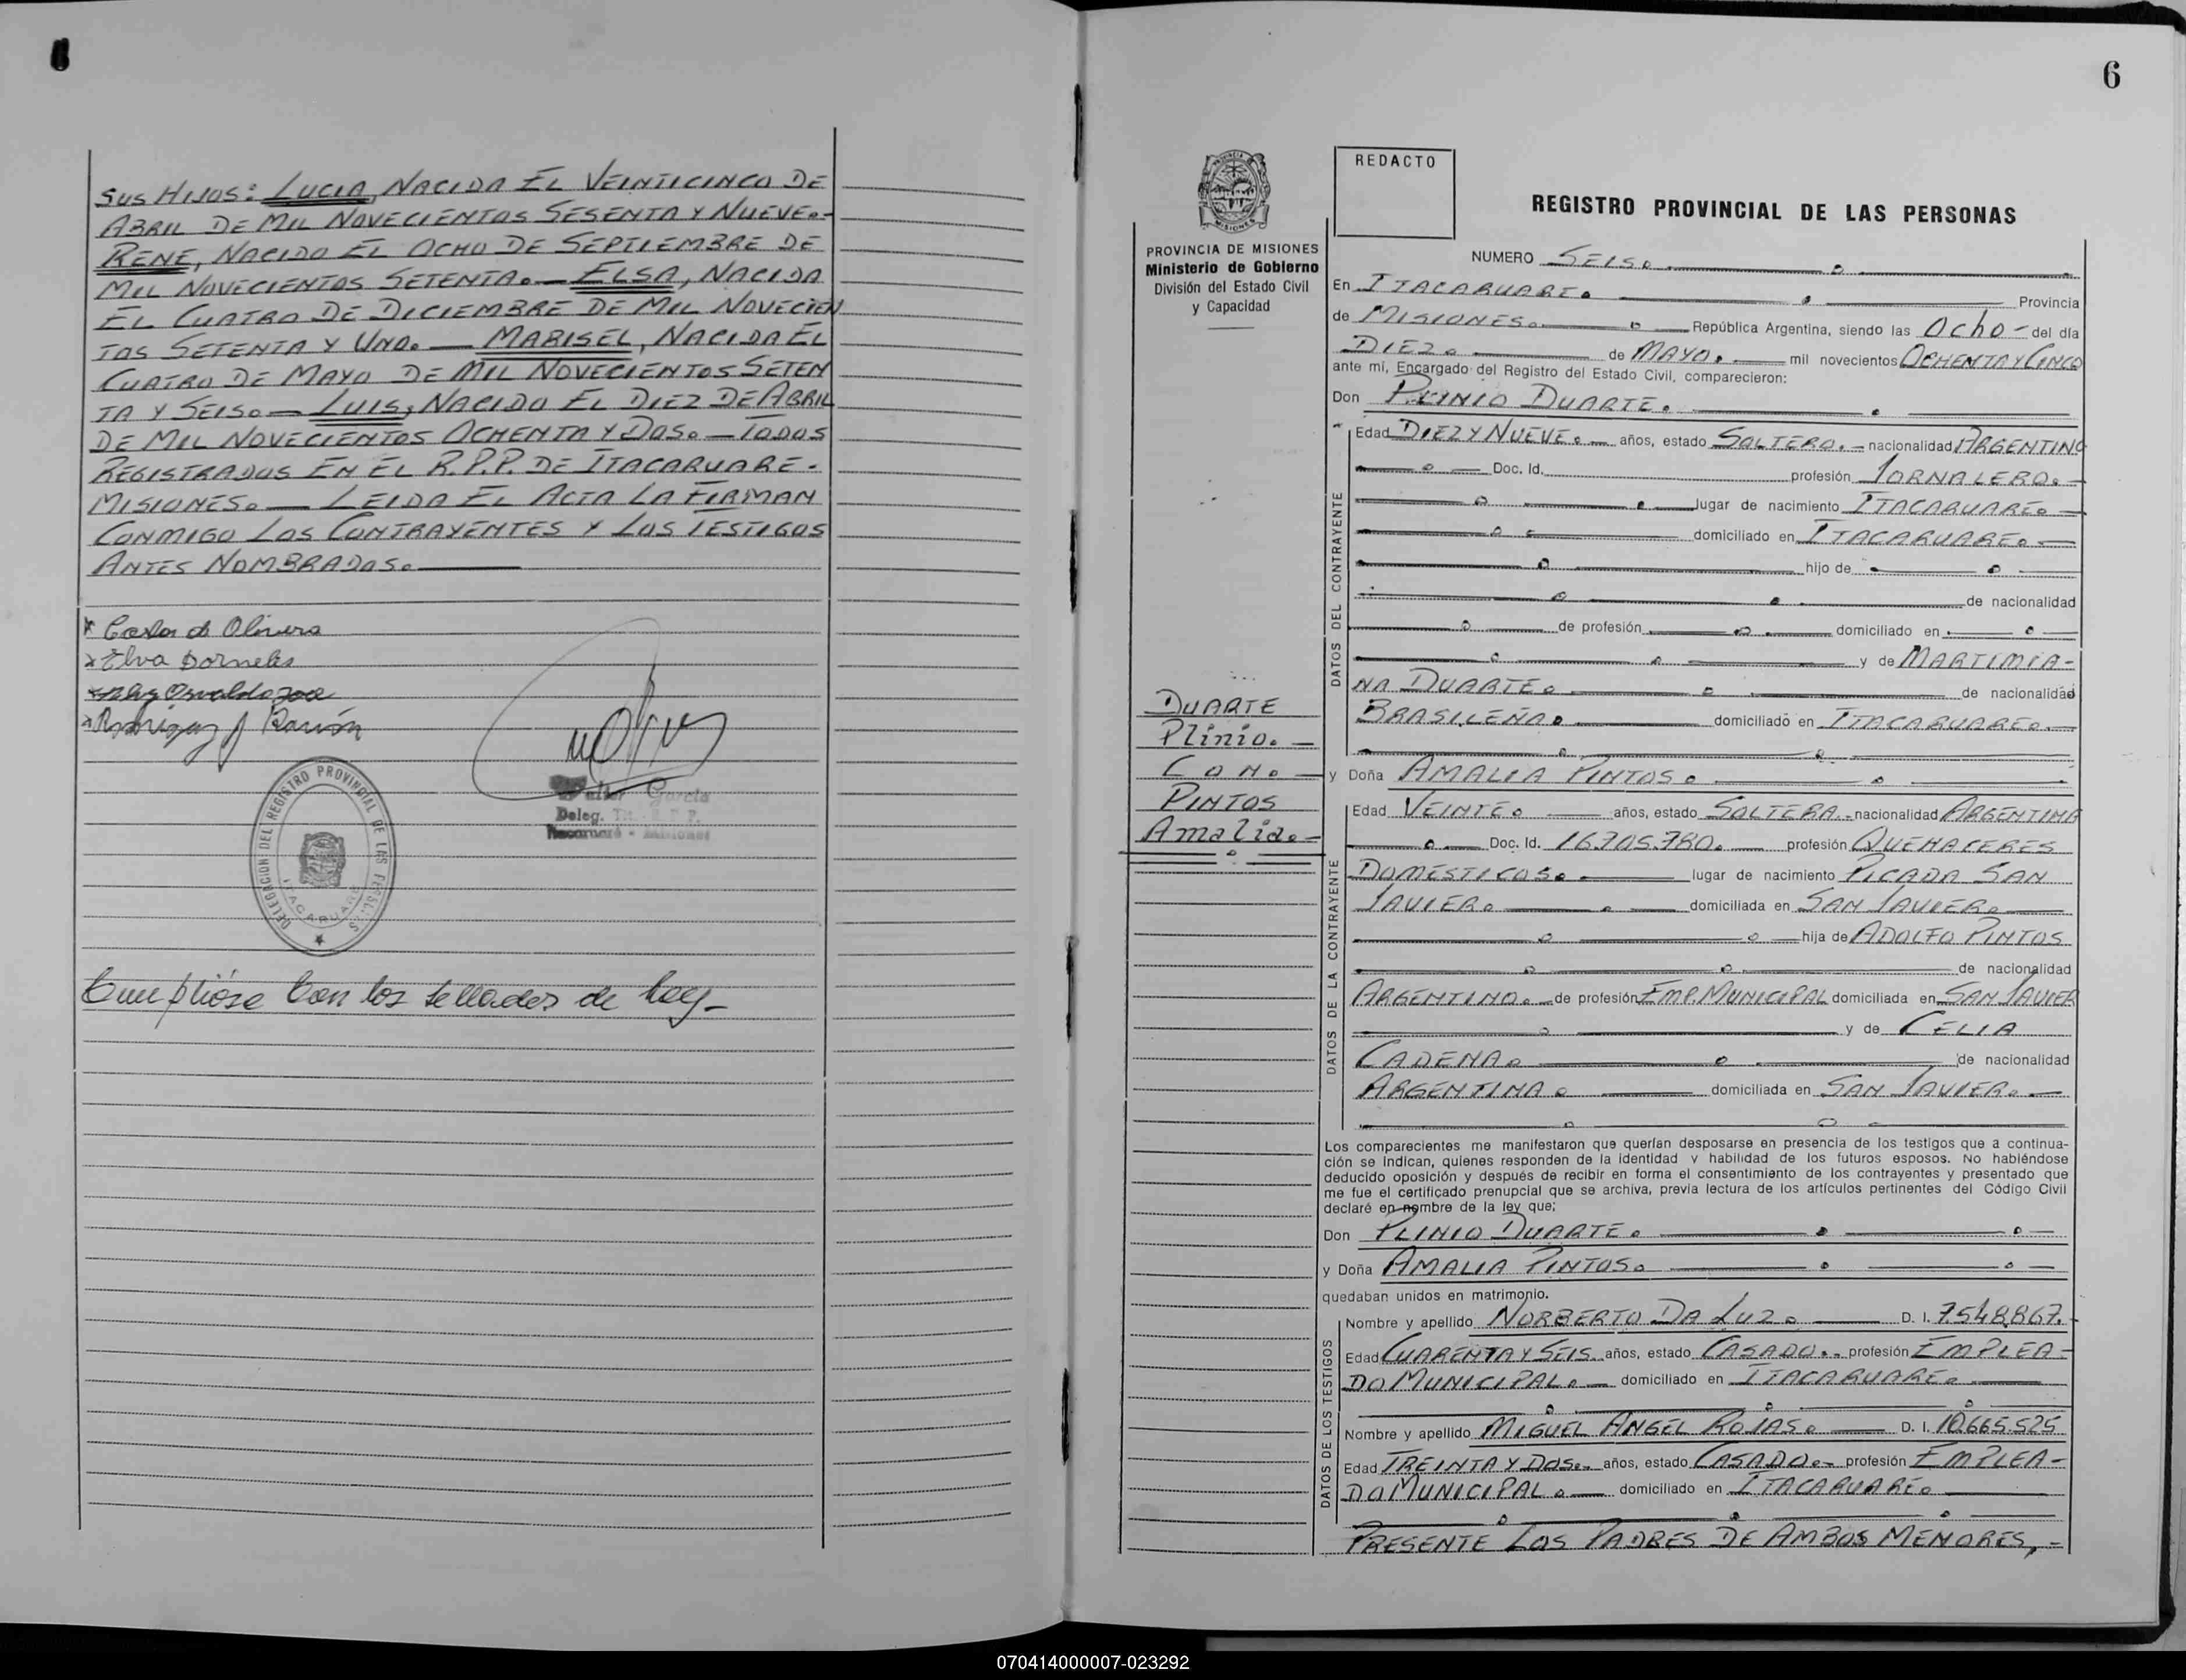 SUS HIJOS: LUCIA, NACIDA EL VEINTICINCO DE
ABRIL DE MIL NOVECIENTOS SESENTA Y NUEVE.-
RENE, NACIDO EL OCHO DE SEPTIEMBRE DE
MIL NOVECIENTOS SETENTA. — ELSA, NACIDA
EL CUATRO DE DICIEMBRE DE MIL NOVECIEN
TOS SETENTA Y UNO. — MARISEL, NACIDA EL
CUATRO DE MAYO DE MIL NOVECIENTOS SETEN
TA Y SEIS. — LUIS, NACIDO EL DIEZ DE ABRIL
DE MIL NOVECIENTOS OCHENTA Y DOS. — TODOS
REGISTRADOS EN EL R.P.P. DE ITACARUARE.
MISIONES. — LEIDA EL ACTA LA FIRMAN
CONMIGO LOS CONTRAYENTES Y LOS TESTIGOS
ANTES NOMBRADOS.
x Elva Dorneles
Ramón
DELEGACION DEL REGISTRO PROVINCIAL DE LAS PERSONAS
ITACARUARE
Walter García
Deleg. Tit. R. P. P.
Itacaruaré - Misiones
Cumplióse con los sellados de ley-
6
PROVINCIA DE MISIONES
Ministerio de Gobierno
División del Estado Civil
y Capacidad
DUARTE
Plinio. —
CON. —
PINTOS
Amalia. —
REDACTO
REGISTRO PROVINCIAL DE LAS PERSONAS
NUMERO SEIS.
En ITACARUARE. Provincia
de MISIONES. República Argentina, siendo las OCHO - del día
DIEZ. de MAYO. mil novecientos OCHENTA Y CINCO
ante mí, Encargado del Registro del Estado Civil, comparecieron:
Don PLINIO DUARTE.
DATOS DEL CONTRAYENTE
Edad DIEZ Y NUEVE. años, estado SOLTERO. - nacionalidad ARGENTINO
Doc. Id. profesión JORNALERO. -
lugar de nacimiento ITACARUARE.
domiciliado en ITACARUARE.
hijo de
de nacionalidad
de profesión domiciliado en
y de MARTIMIA-
NA DUARTE. de nacionalidad
BRASILEÑA. domiciliado en ITACARUARE.
y Doña AMALIA PINTOS.
DATOS DE LA CONTRAYENTE
Edad VEINTE. años, estado SOLTERA. - nacionalidad ARGENTINA
Doc. Id. 16.705.780. profesión QUEHACERES
DOMESTICOS. lugar de nacimiento PICADA SAN
JAVIER. domiciliada en SAN JAVIER.
hija de ADOLFO PINTOS
de nacionalidad
ARGENTINO. de profesión EMP. MUNICIPAL domiciliada en SAN JAVIER
y de CELIA
CADENA. de nacionalidad
ARGENTINA. domiciliada en SAN JAVIER.
Los comparecientes me manifestaron que querían desposarse en presencia de los testigos que a continua-
ción se indican, quienes responden de la identidad y habilidad de los futuros esposos. No habiéndose
deducido oposición y después de recibir en forma el consentimiento de los contrayentes y presentado que
me fue el certificado prenupcial que se archiva, previa lectura de los artículos pertinentes del Código Civil
declaré en nombre de la ley que;
Don PLINIO DUARTE.
y Doña AMALIA PINTOS.
quedaban unidos en matrimonio.
DATOS DE LOS TESTIGOS
Nombre y apellido NORBERTO DA LUZ. D. I. 7.548.867.
Edad CUARENTA Y SEIS. años, estado CASADO. - profesión EMPLEA-
DO MUNICIPAL. domiciliado en ITACARUARE.
Nombre y apellido MIGUEL ANGEL ROJAS. D. I. 10.665.525
Edad TREINTA Y DOS. años, estado CASADO. - profesión EMPLEA-
DO MUNICIPAL. domiciliado en ITACARUARE.
PRESENTE LOS PADRES DE AMBOS MENORES, -
070414000007-023292